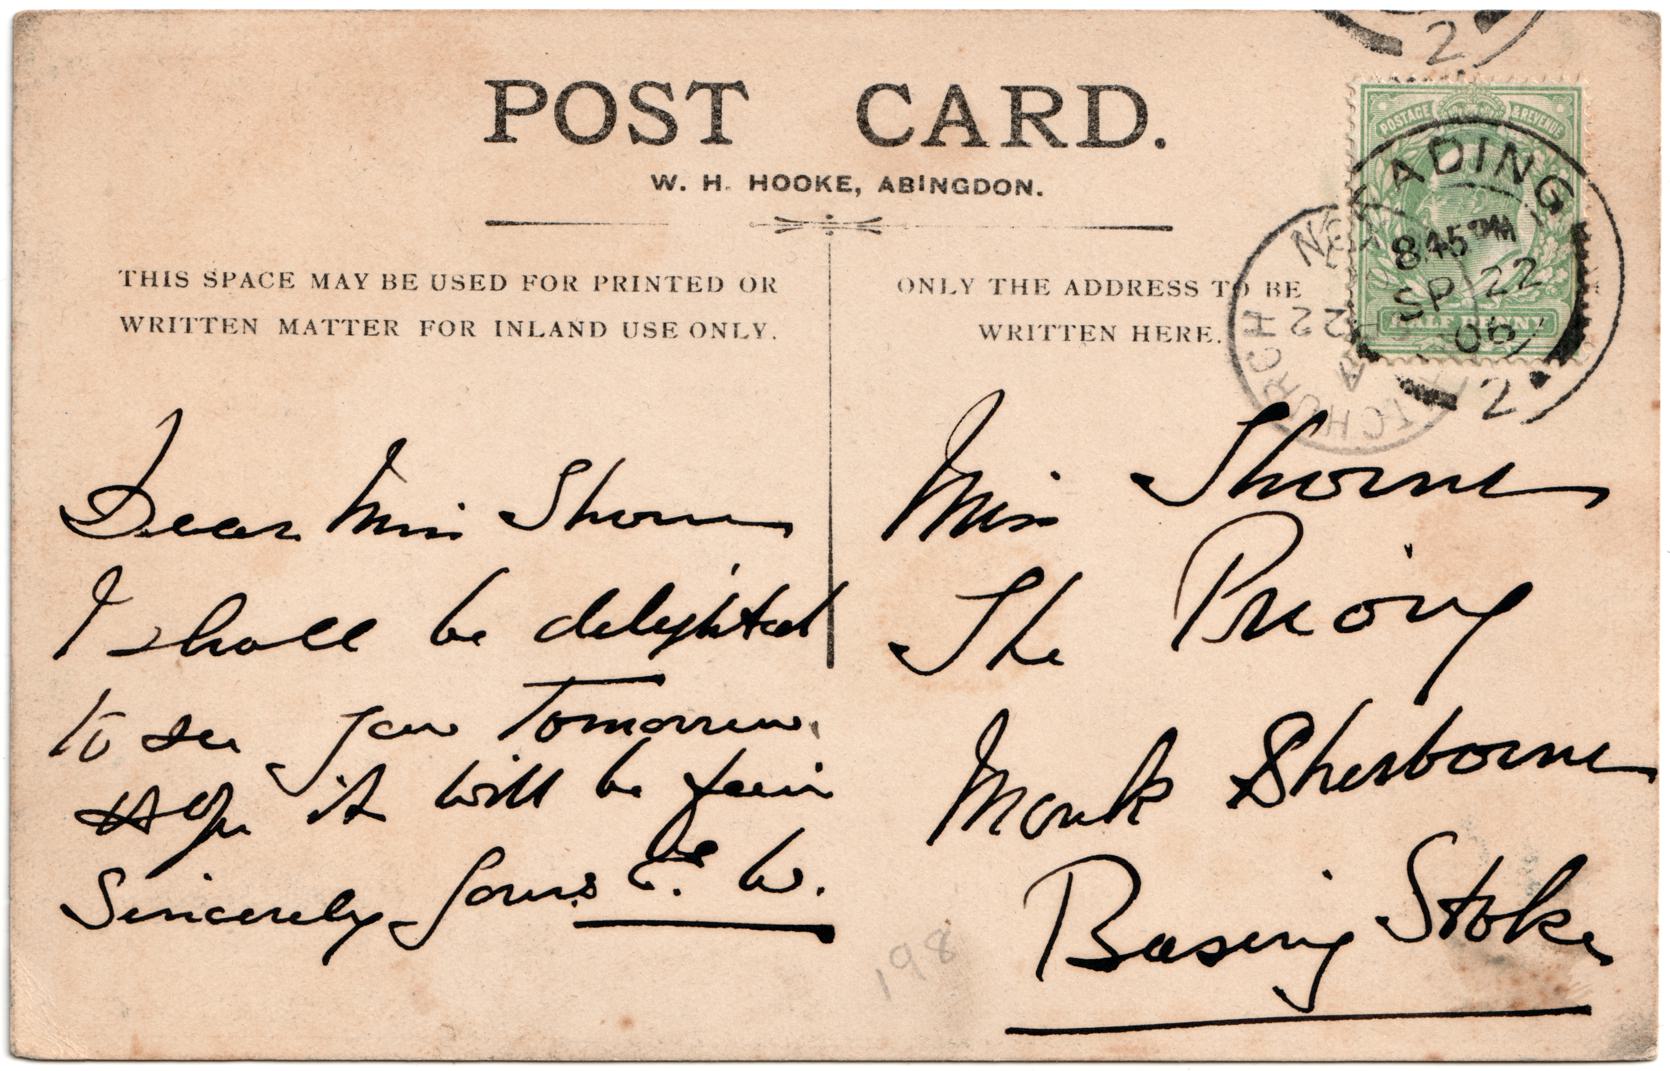 POST CARD.
W. H. HOOKE, ABINGDON.
THIS SPACE MAY BE USED FOR PRINTED OR
WRITTEN MATTER FOR INLAND USE ONLY.
Dear Miss Thorne
I shall be delighted
to see you Tomorrow.
Hope it will be fair
Sincerely Yours E. W.
198
ONLY THE ADDRESS TO BE
WRITTEN HERE.
Miss Thorne
The Priory
Monk Sherborne
Basing Stoke
POSTAGE & REVENUE
HALF PENNY
READING
8.45 PM
SP 22
06
2
2
TCHURCH
22